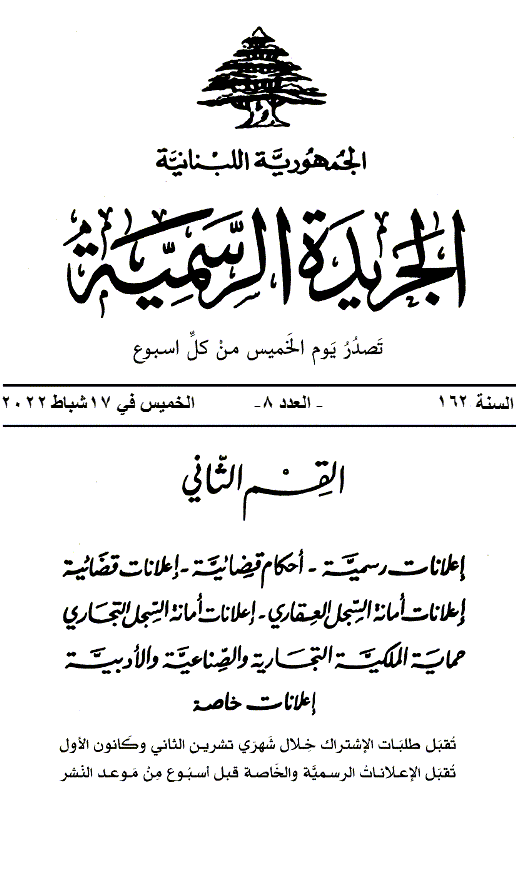 الجمهورية اللبنانية
الجريدة الرسمية
تَصدُرُ يَوم الخَميس منْ كلِّ اسبوع
السنة ١٦٢ - العدد ٨- الخميس في ١٧ شباط ٢٠٢٢
القِسْم الثّاني
إعلانات رسميَّة - أحكام قضائيَّة - إعلانات قضائية
إعلانات أمانة السّجل العقاري - إعلانات أمانة السّجل التجاري
حماية الملكيَّة التجارية والصّناعيَّة والأدبيَّة
إعلانات خاصة
تُقبَل طلبَات الإشتراك خِلال شَهرَي تشرين الثاني وكَانون الأول
تُقبَل الإعلاناتُ الرسميَّة والخَاصة قبل أسبُوع مِنْ مَوعد النَشر